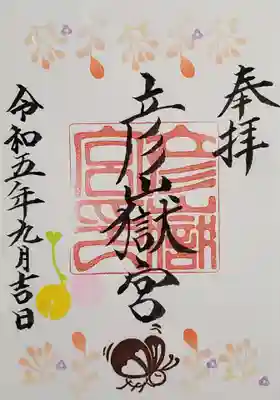 奉拝
彦嶽宮
令和五年九月吉日